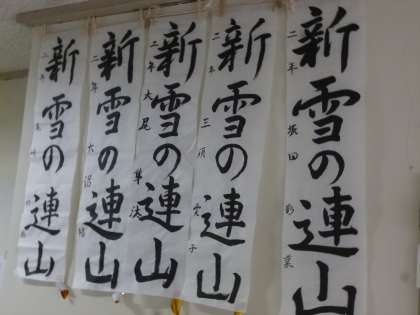 新雪の連山
二年
新雪の連山
二年 大沼
新雪の連山
二年 大尾
新雪の連山
二年 三須
新雪の連山
二年 張田 彩菜